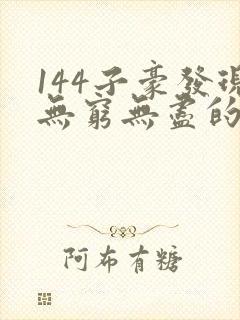 144子豪發現
無窮無盡的
阿布有糖